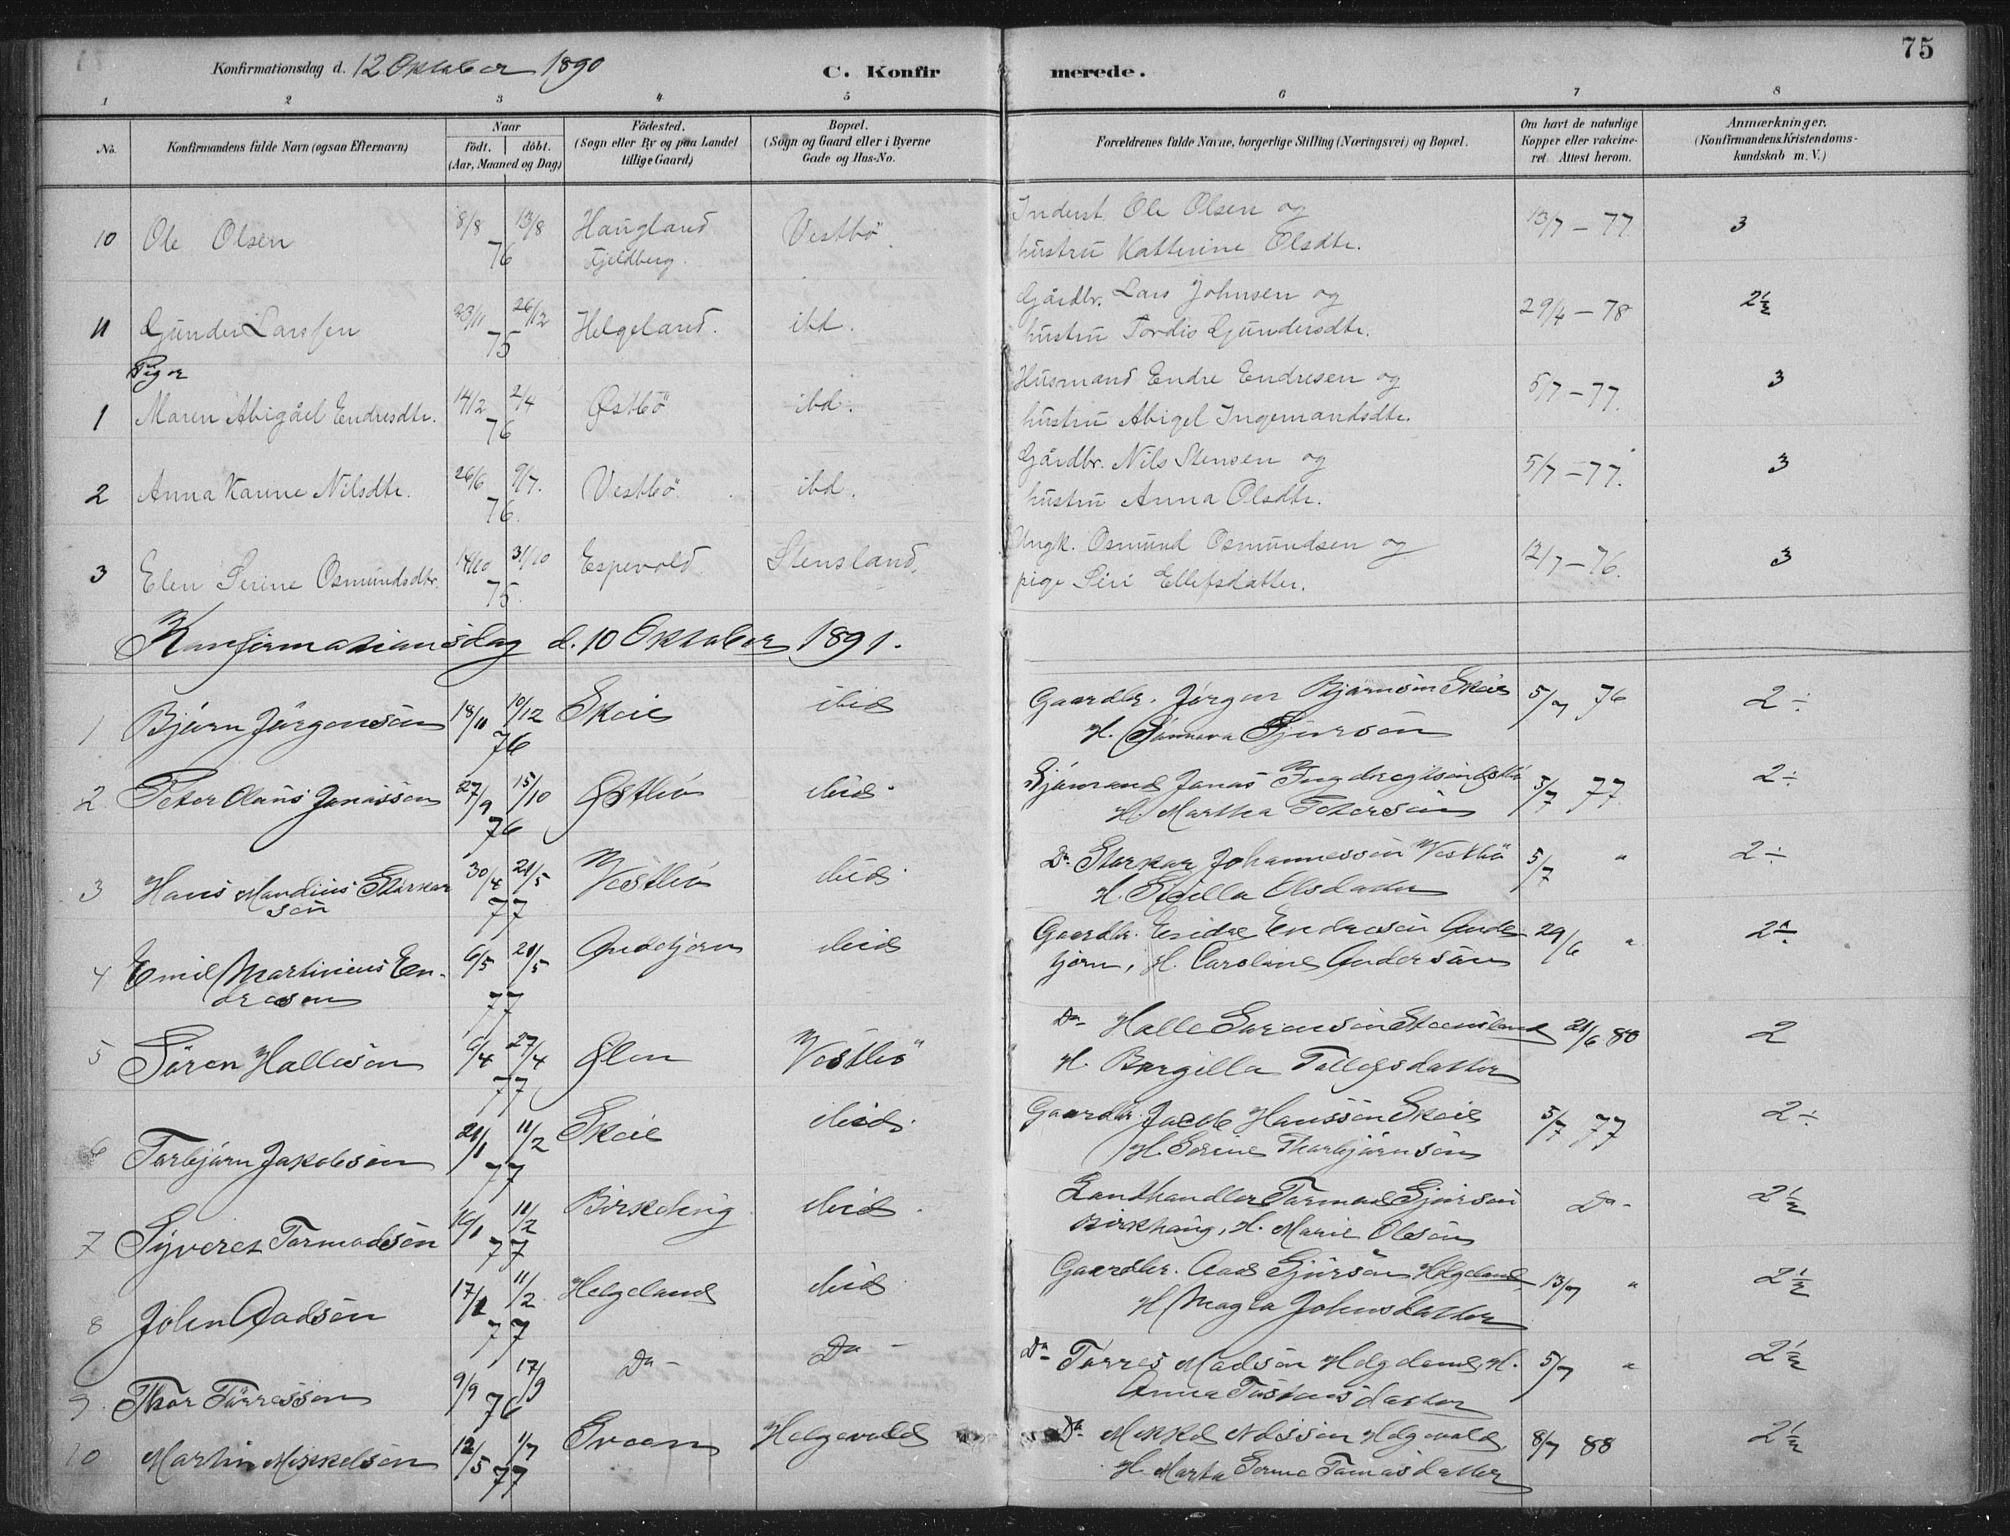 75
Konfirmationsdag d. 12 Oktober 1890 C. Konfirmerede.
1 2 3 4 5 6 7 8
No. Konfirmandens fulde Navn (ogsaa Efternavn) Naar født. døbt. (Aar, Maaned og Dag) Fødested. (Sogn eller By og paa Landet tillige Gaard) Bopæl. (Sogn og Gaard eller i Byerne Gade og Hus-No. Forældrenes fulde Navne, borgerlige Stilling (Næringsvei) og Bopæl. Om havt de naturlige Kopper eller vakcineret. Attest herom. Anmærkninger. (Konfirmandens Kristendomskundskab m. V.)
10 Ole Olsen 8/8 13/8 76 Haugland Fjeldberg. Vestbö. Inderst. Ole Olsen og hustru Katterine Olsdtr. 13/7 – 77 3
11 Gunder Larssen 23/11 26/12 75 Helgeland. ibd. Gårdbr. Lars Johnsen og hustru Tordis Gundersdtr. 29/4 – 78 2½
Piger
1 Maren Abigåel Endresdtr. 14/2 2/4 76 Østbö ibd. Husmand Endre Endresen og hustru Abigel Ingemandsdtr. 5/7 – 77. 3
2 Anna Karine Nilsdtr. 26/6 9/7. 76. Vestbö ibd. Gårdbr. Nils Stensen og hustru Anna Olsdtr. 5/7 – 77. 3
3 Elen Serine Osmundsdtr. 14/10 31/10 75. Espevold. Stensland. Ungk. Osmund Osmundsen og pige Siri Ellefsdatter. 12/7 – 76. 3
Konfirmationsdag d. 10 Oktober 1891.
1 Bjørn Jørgensøn 18/11 10/12 76 Skeie ibid Gaardbr. Jørgen Bjørnsøn Skeie H. Sjursøn 5/7 76 2÷
2 Peter Olaus Jonassøn 27/9 15/10 76 Østbø ibid. Sjømand Jonas H. Martha Petersøn 5/7 77 2÷
3 Hans Mandius Størkersøn 30/4 21/5 77 Vestbø ibid. Do Størker Johannessøn Vestbø H. Olsdatter 5/7 " 2÷
4 Emil Martinius Endresøn 6/5 21/5 77 ibid Gaardbr. Endre Endresøn H. Caroline Andersøn 29/6 "
5 Søren Hallesøn 6/4 27/4 77 Ølen Vestbø Do Halle Sørensøn Steensland H. Bergilla Tollefsdatter 21/6 80 2
6 Torbjørn Jakobsøn 21/1 11/2 77 Skeie ibid. Gaardbr. Jacob Hanssøn Skeie H. Serine Thorbjørnsøn 5/7 77 2÷
7 Syvert Tormodsøn 16/1 11/2 77 ibid. Landhandler Tormod Sjursøn Birkhaug, H. Marie Olsøn Do 2½
8 John Aadsøn 17/1 11/2 77 Helgeland ibid. Gaardbr. Aad Sjursøn Helgeland H Magla Johnsdatter 13/7 " 2½
9. Thor Tørressøn 9/9 17/9 76 Do – Do – Do Tørres Madsøn Helgeland, H. Anna Tostensdatter 5/7 " 2½
10 Martin Mikkelsøn 12/5 1/7 77 Sveen Helgevold Do Mikkel Nilssøn Helgevold, H. Marta Serine Tomasdatter 8/7 88 2½